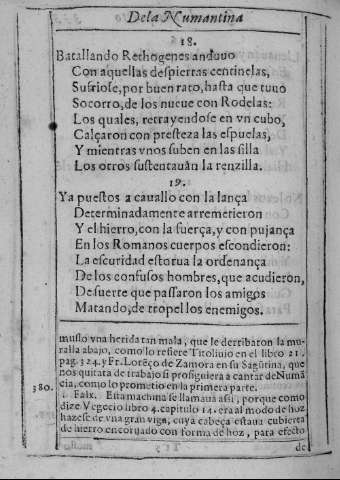 Dela Numantina
18.
Batallando Rethogenes anduuo
Con aquellas despiertas centinelas,
Sufriose, por buen rato, hasta que tuuo
Socorro, de los nueue con Rodelas:
Los quales, retrayendose en vn cubo,
Calçaron con presteza las espuelas,
Y mientras vnos suben en las silla
Los otros sustentauãn la renzilla.
19.
Ya puestos a cauallo con la lança
Determinadamente arremetieron
Y el hierro, con la fuerça, y con pujança
En los Romanos cuerpos escondieron:
La escuridad estorua la ordenança
De los confusos hombres, que acudieron,
De suerte que passaron los amigos
Matando, de tropel los enemigos.
muslo vna herida tan mala, que le derribaron la mu-
ralla abajo, como lo refiere Titoliuio en el libro 21.
pag. 324. y Fr. Lorẽço de Zamora en su Sagũtina, que
nos quitara de trabajo si prosiguiera à cantar deNumã
380. cia, como lo prometio en la primera parte.
1. Falx. Esta machina se llamaua assi, porque como
dize Vegecio libro 4. capitulo 14. era al modo de hoz
hazese de vna gran viga, cuya cabeça estaua cubierta
de hierro encoruado con forma de hoz, para efecto
de